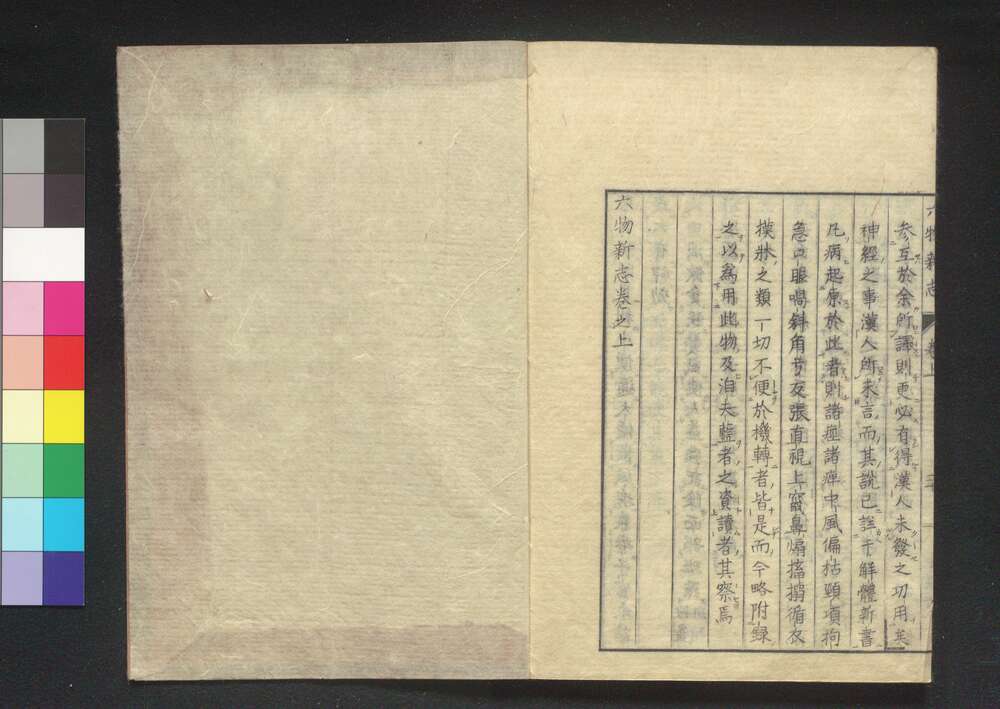 六物新志 卷上
參互於余所譯則更必有得漢人未發之功用矣
神經之事漢人所未言而其說已詮于解體新書
凡病起原於此者則諸痙諸痺中風偏枯頸項拘
急口眼喎斜角弓反張直視上竄鼻煽搐搦循衣
摸牀之類一切不便於機轉者皆是而今略附錄
之以爲用此物及洎夫藍者之資讀者其察焉
六物新志卷之上